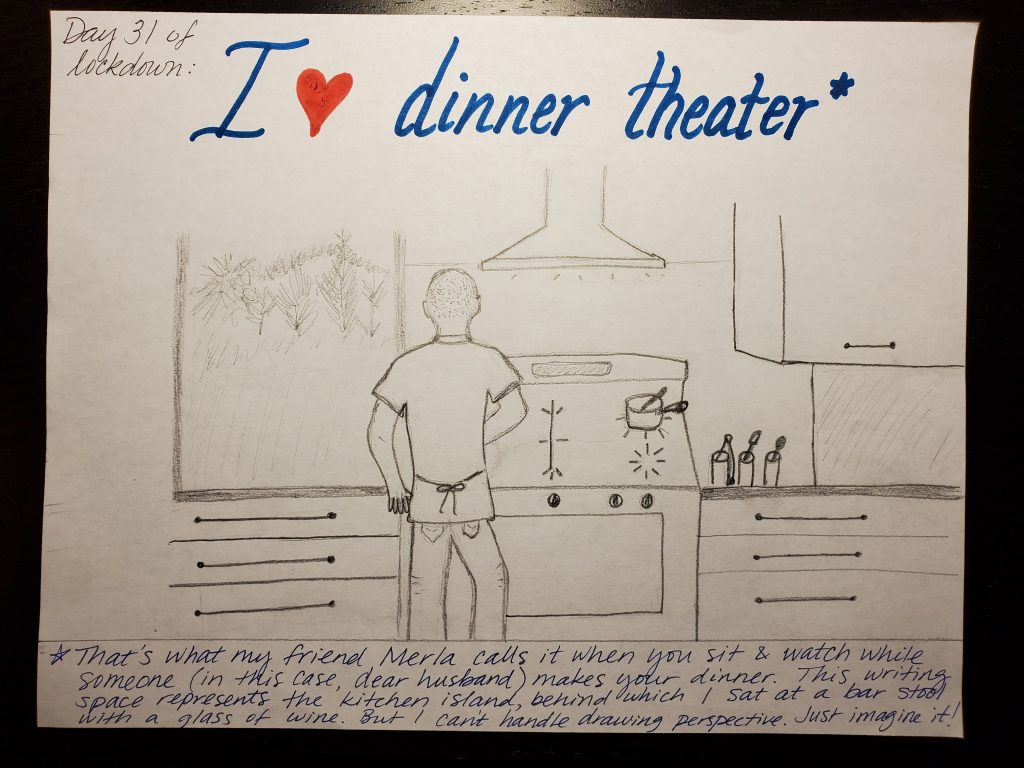 Day 31 of
lockdown:
I ❤ dinner theater*
* That's what my friend Merla calls it when you sit & watch while
someone (in this case, dear husband) makes your dinner. This writing
space represents the kitchen island, behind which I sat at a bar stool
with a glass of wine. But I can't handle drawing perspective. Just imagine it!